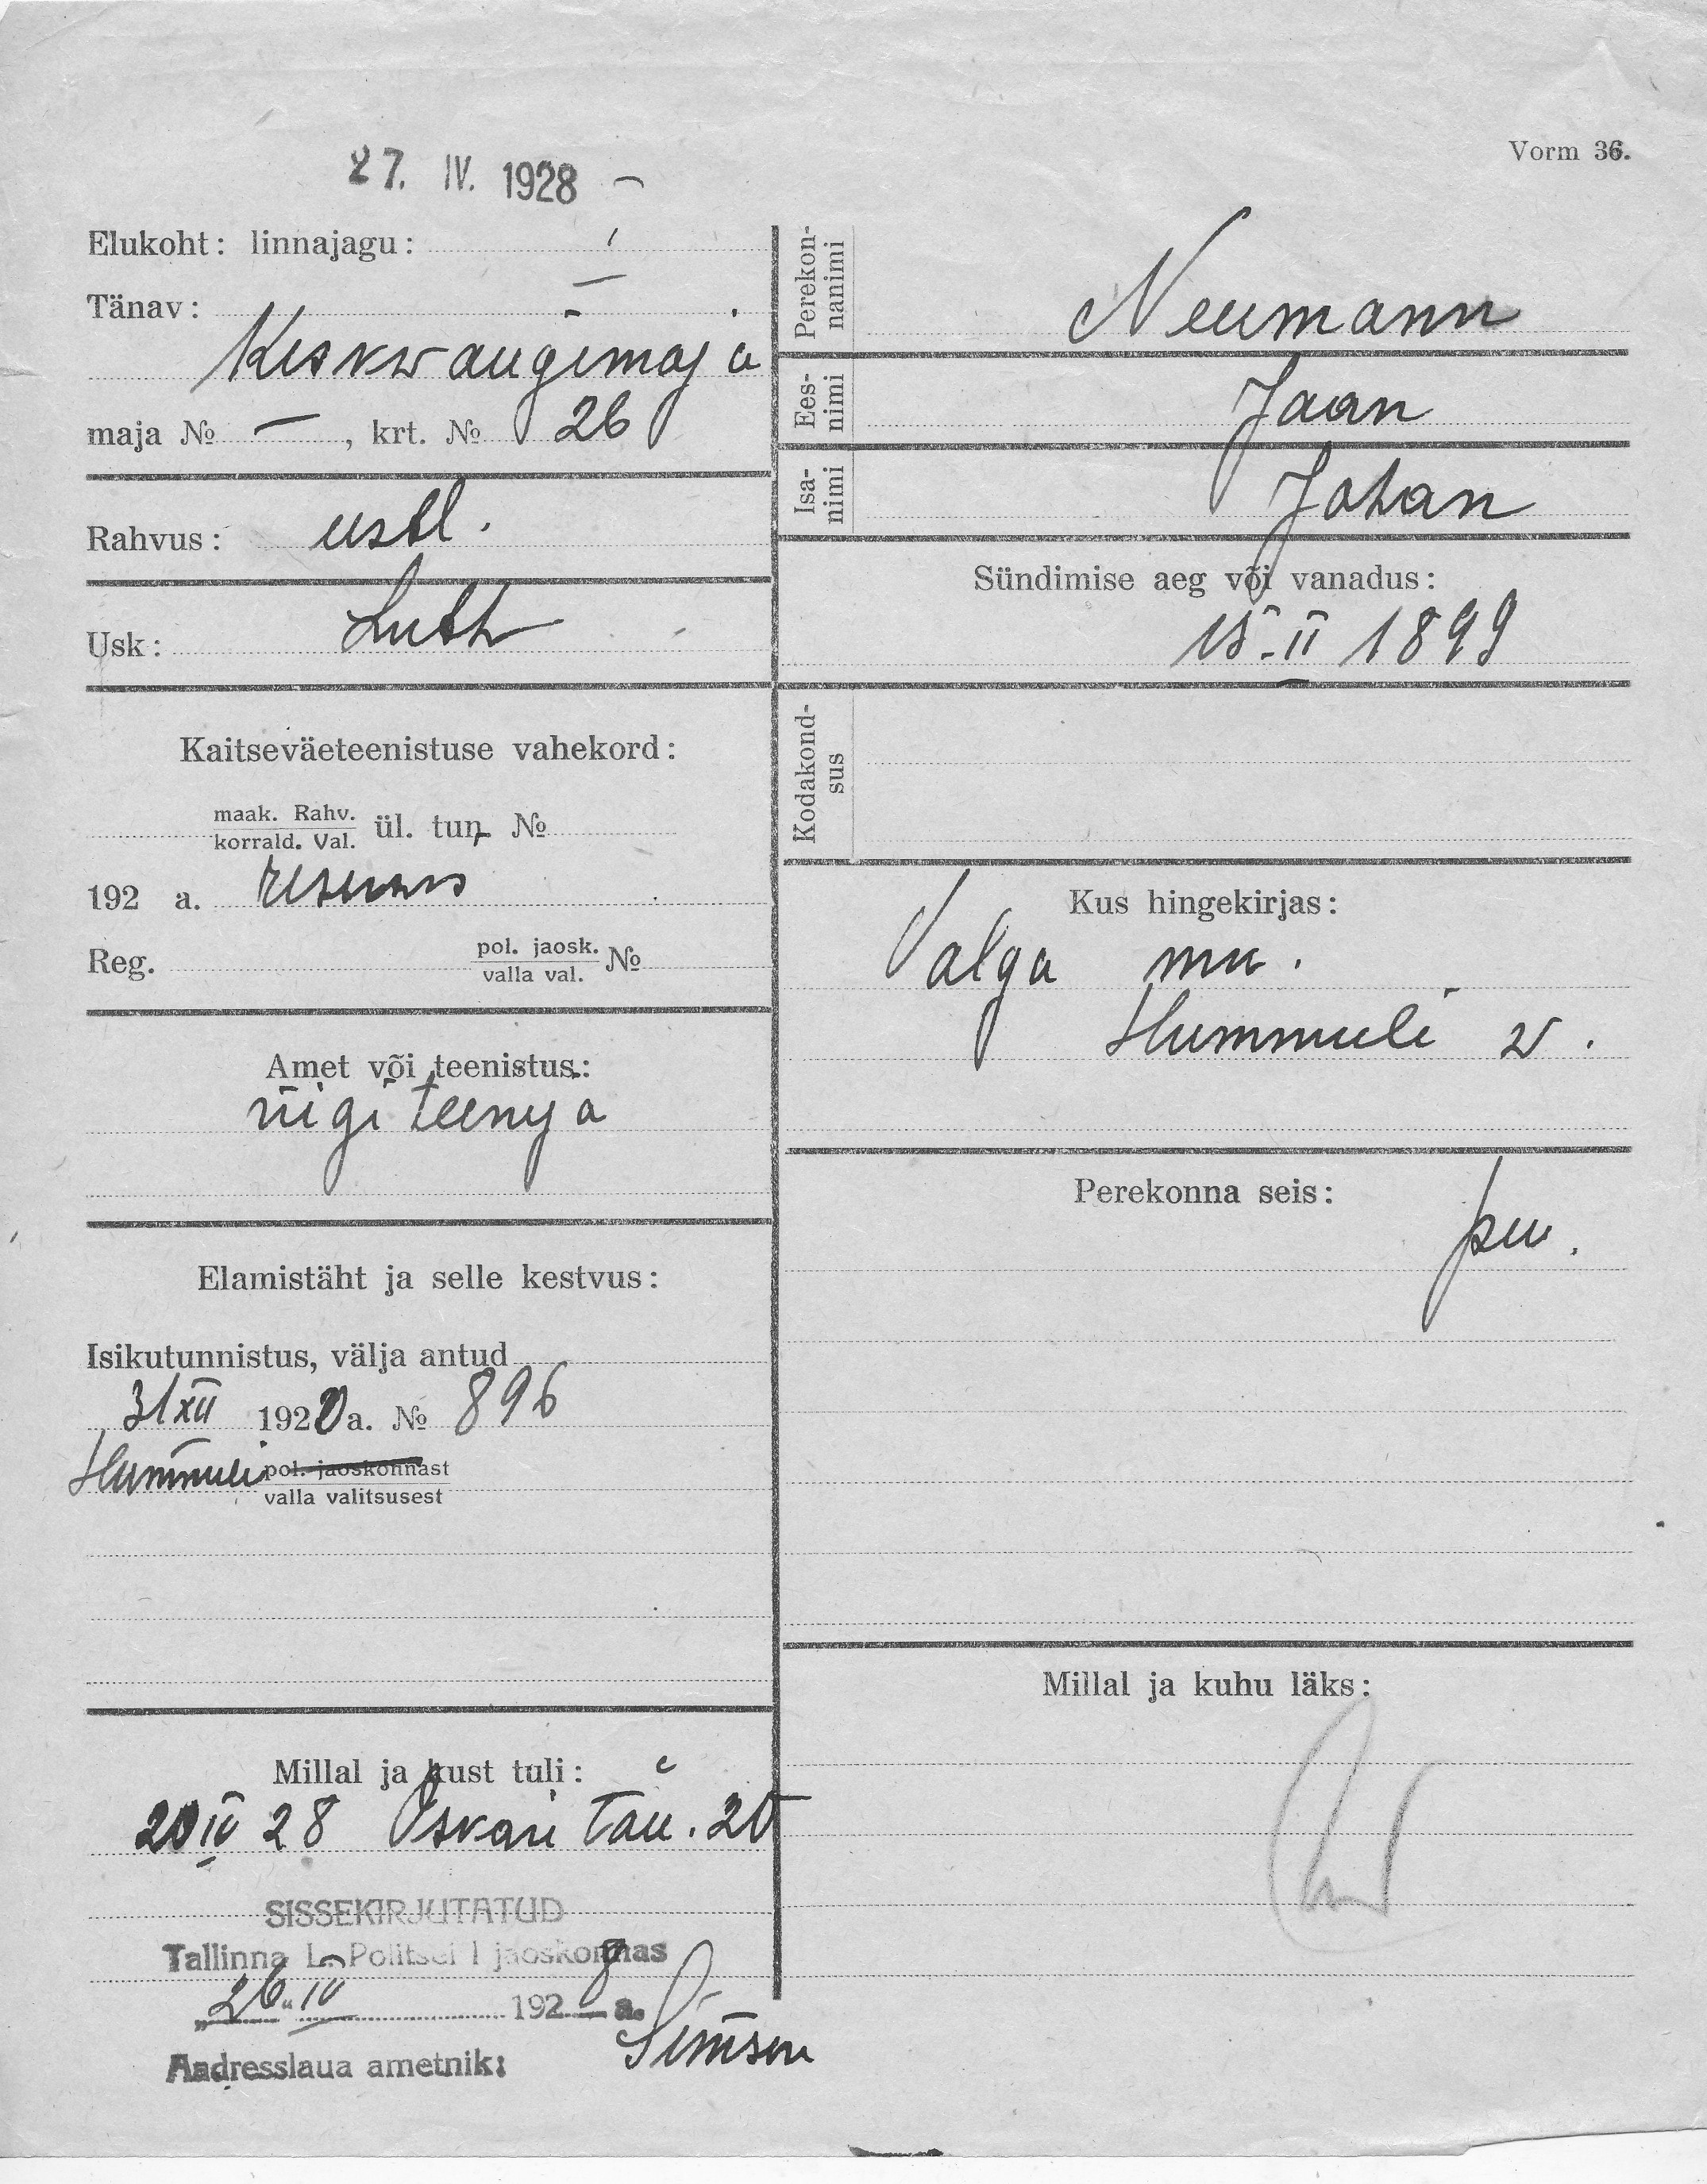 27. IV. 1928 –
Vorm 36.
Elukoht: linnajagu: I
Tänav:
Keskwangimaja
maja № – , krt. № 26
Rahvus: eestl.
Usk: Luth
Kaitseväeteenistuse vahekord:
maak. Rahv.
korrald. Val. ül. tun. №
192 a. reservis
Reg. pol. jaosk.
valla val. №
Amet või teenistus:
riigi teenija
Elamistäht ja selle kestvus:
Isikutunnistus, välja antud
31 XII 1920 a. № 896
Hummuli pol. jaoskonnast
valla valitsusest
Millal ja kust tuli:
20 IV 28 Oskari tän. 20
SISSEKIRJUTATUD
Tallinna L. Politsei I jaoskonnas
„26" IV 1928 a.
Aadresslaua ametnik: Simson
Perekon-
nanimi
Neumann
Ees-
nimi
Jaan
Isa-
nimi
Johan
Sündimise aeg või vanadus:
15. II 1899
Kodakond-
sus
Kus hingekirjas:
Valga mk.
Hummuli w.
Perekonna seis:
Millal ja kuhu läks: